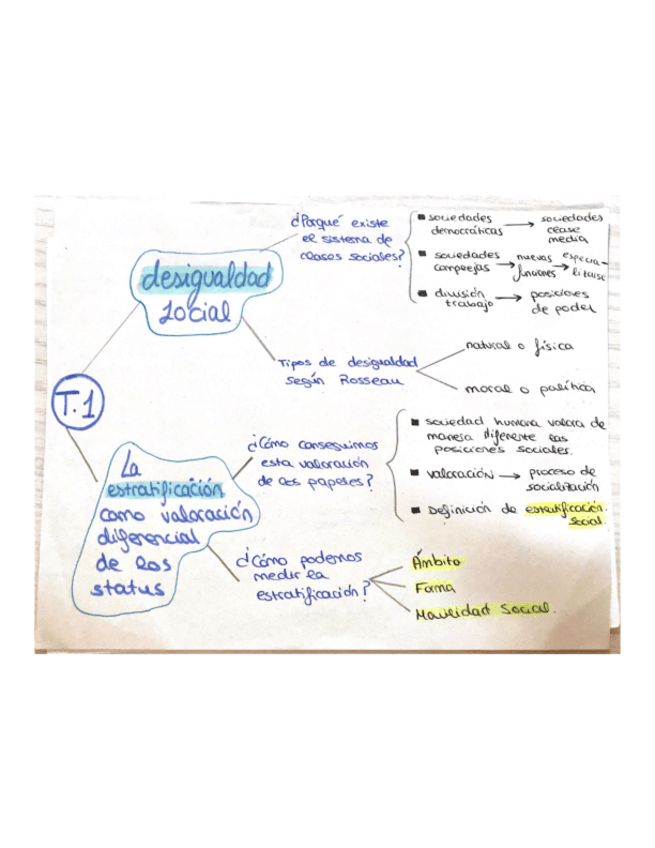 T.1
desigualdad
social
¿Porqué existe
el sistema de
clases sociales?
sociedades
democráticas → sociedades
clase
media
sociedades
complejas → nuevas
funciones →
división
trabajo → posiciones
de poder
Tipos de desigualdad
según Rosseau
natural o física
moral o política
La
estratificación
como valoración
diferencial
de los
status
¿Cómo conseguimos
esta valoración
de los papeles?
sociedad humana valora de
manera diferente las
posiciones sociales.
valoración → proceso de
socialización
Definición de estratificación
social.
¿Cómo podemos
medir la
estratificación?
Ámbito
Forma
Movilidad Social.